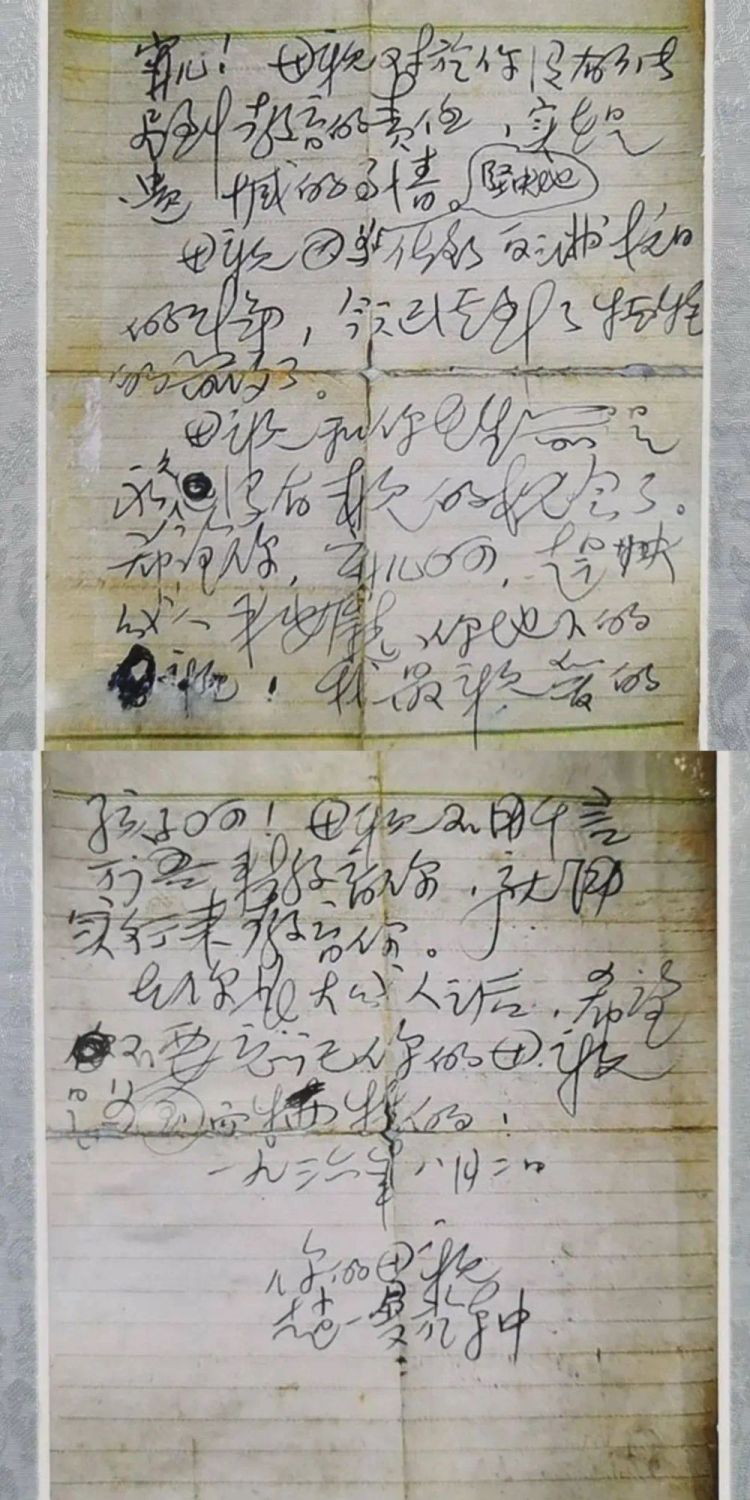 宁儿！母亲对於你没有能尽
到教育的责任，实在是
遗憾的事情。
坚决地
母亲因为作了反满抗日
的斗争，今天已经到了牺牲
的前夕了。
母亲和你在生前是
永久没有见的机会了。
希望你，宁儿啊，赶快
成人，来安慰你地下的
母亲！我最亲爱的
孩子啊！母亲不用千言
万语来教育你，就用
实行来教育你。
在你长大成人之后，希望
不要忘记你的母亲
是为国而牺牲的！
一九三六年八月二日
你的母亲
赵一曼於车中